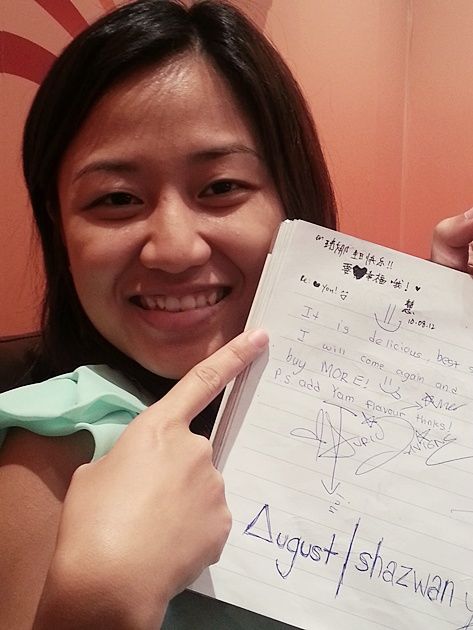 生日快乐!!
要♥幸福哦! ♥
Re: ♥ you!
慧
10.08.12
It is delicious, best
I will come again and
buy MORE!
P's add Yam flavour thnks!
August / shazwan